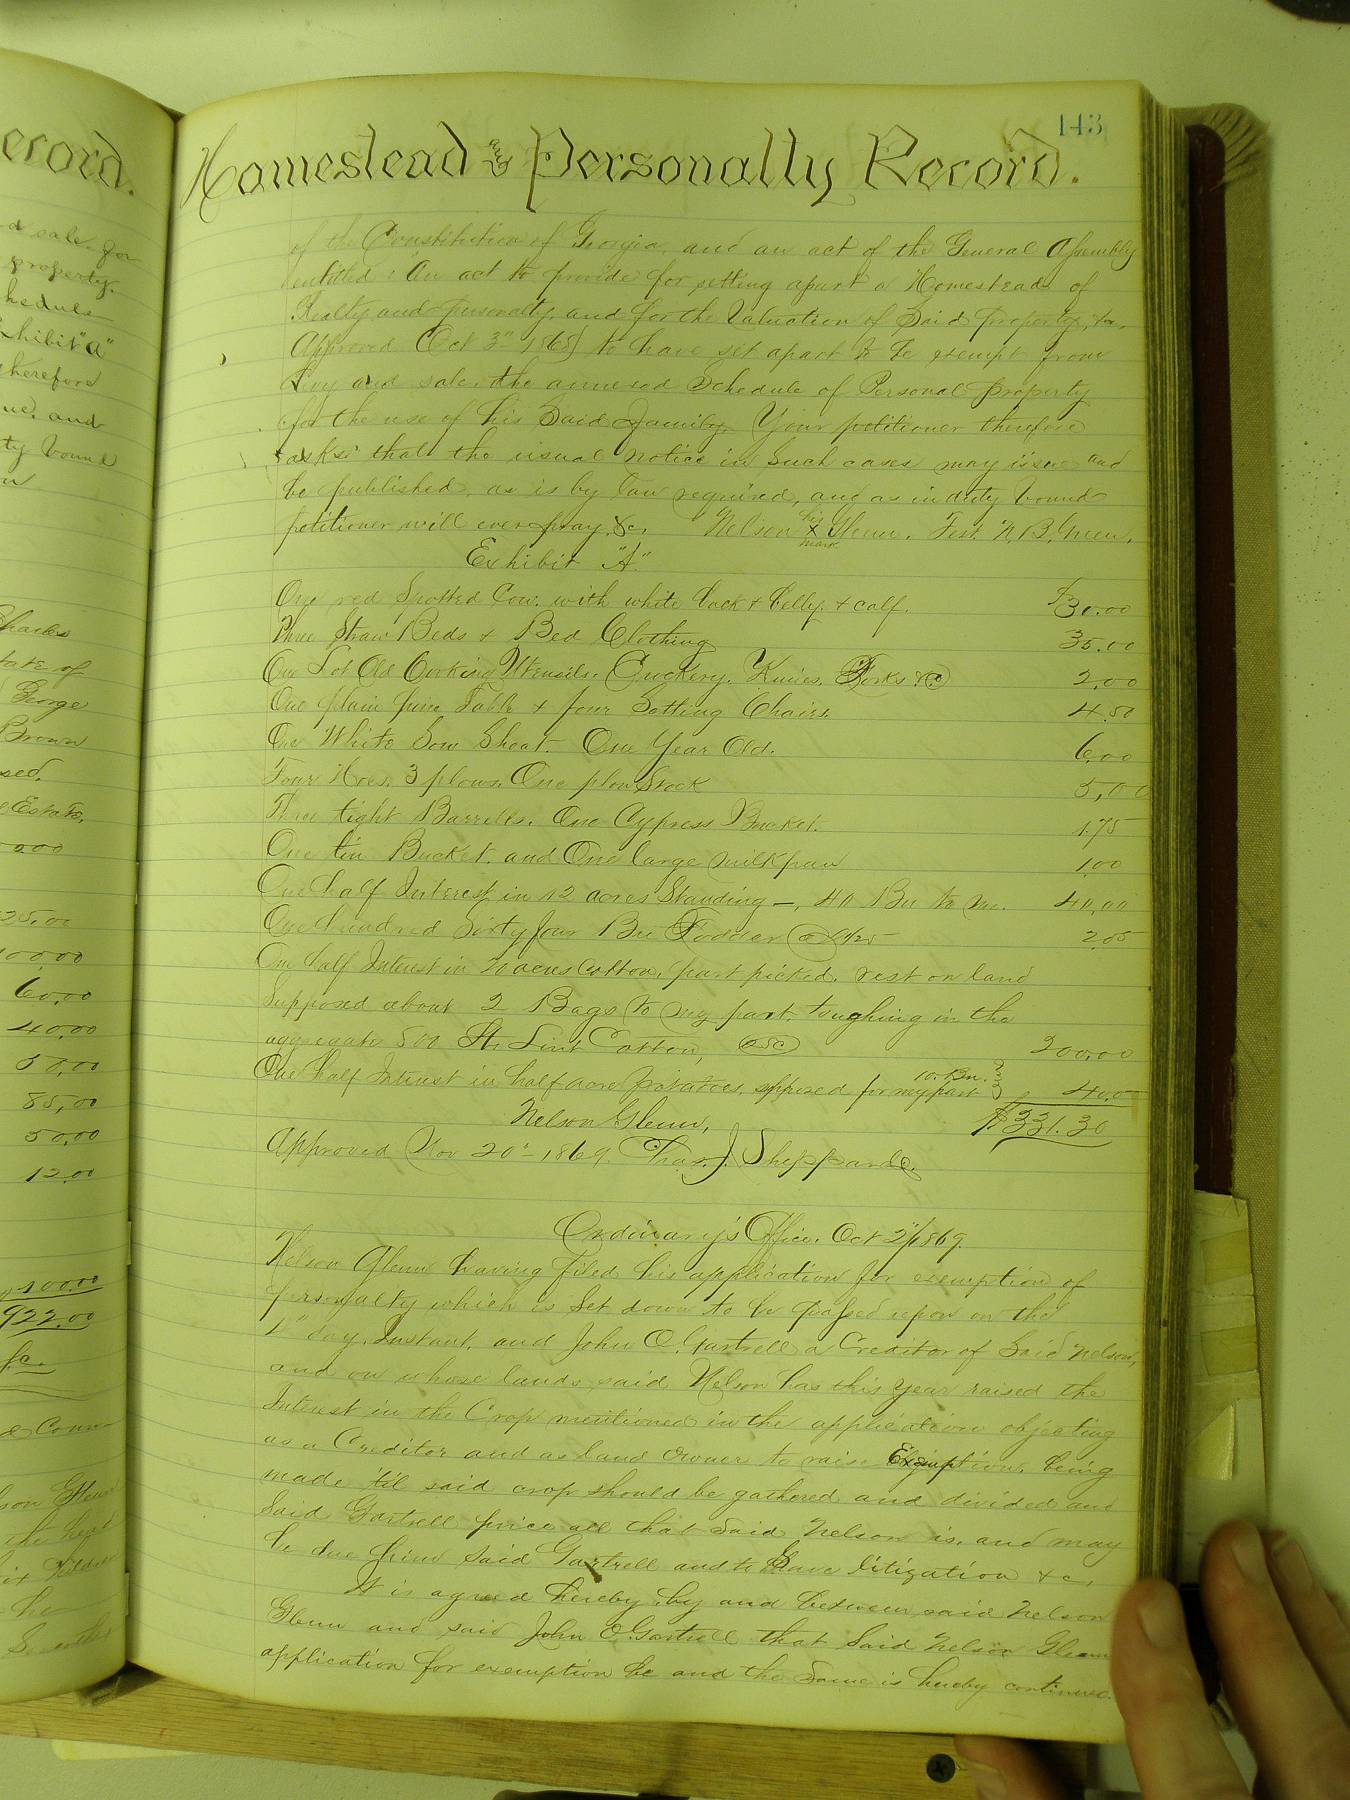 ecord.
d sale for
property.
hedule
xhibit "a"
therefore
ue, and
ty bound
Charles
tate of
George
Brown
sed.
Estate,
25.00
100.00
60.00
40.00
50.00
85,00
50.00
12.00
100.00
922.00
143
Homestead and Personalty Record.
of the Constitution of Georgia, and an act of the General Assembly
entitled "An act to provide for setting apart a Homestead of
Realty and personalty, and for the Valuation of Said property, &c,
Approved Oct 3rd 1868) to have set apart & to be exempt from
Levy and sale, the annexed Schedule of Personal Property
for the use of his Said family. Your petitioner therefore
asks that the usual notice in Such cases may issue and
be published, as is by law required, and as in duty bound
petitioner will ever pray, &c, Nelson his X mark Glenn. Test. N. B. Green.
Exhibit "A"
One red Spotted Cow. with white back & belly. & calf. $30.00
Three Straw Beds & Bed Clothing 35.00
One Lot Old Cooking Utensils. Crockery. Knives. Forks &c 2.00
One plain pine Table & four Setting Chairs. 4.50
One White Sow Shoat. One Year Old. 6.00
Four Hoes. 3 plows. One plow Stock 5,00
Three tight Barrells. One Cypress Bucket. 1.75
One tin Bucket. and One large milk pan 1,00
One half Interest in 12 acres Standing —, 40 Bu to me. 40,00
One hundred Sixty four Bu Fodder @ 1/25 2.05
One half Interest in 20 acres Cotton, part picked. rest on land
Supposed about 2 Bags to my part. weighing in the
aggregate 800 lbs Lint Cotton, @ 25c 200.00
One half Interest in half acre potatoes, supposed for my part 10. Bu. 40.0
Nelson Glenn, $331.30
Approved Nov 20th 1869. Thas. J. Sheppard O.
Ordinary's Office. Oct 2nd 1869.
Nelson Glenn having filed his application for exemption of
personalty which is Set down to be passed upon on the
day. Instant, and John O. Gartrell a Creditor of Said Nelson,
and on whose lands said Nelson has this year raised the
Interest in the Crop mentioned in the application objecting
as a Creditor and as land owner to raise Exemption, being
made 'til said crop should be gathered and divided and
Said Gartrell price all that said Nelson is, and may
be due him said Gartrell and to Save litigation &c,
It is agreed hereby, by and between said Nelson
Glenn and said John O. Gartrell that Said Nelson Glenn
application for exemption be and the Same is hereby continued.